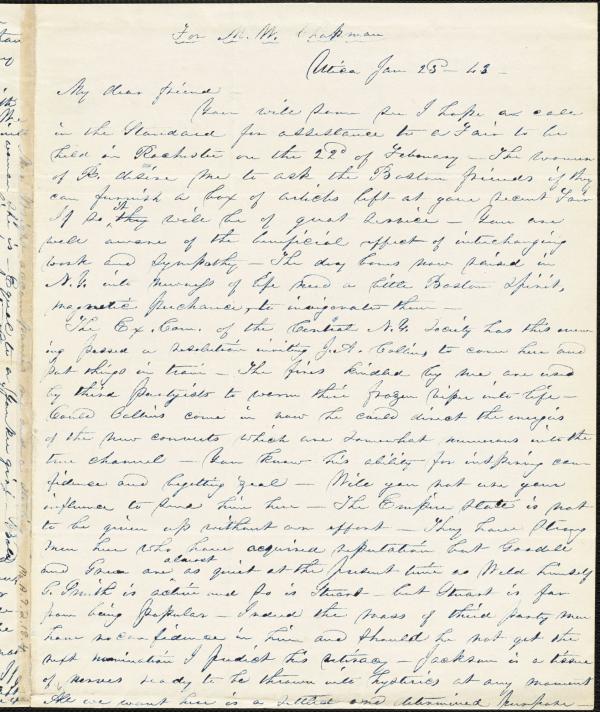 For M. W. Chapman
Utica Jan 25 - 43 -
My dear friend
You will soon see I hope a call
in the Standard for assistance to a Fair to be
held in Rochester on the 22d of February - The women
of R. desire me to ask the Boston friends if they
can furnish a box of articles left at your recent Fair
If so, they will be of great service - You are
well aware of the beneficial effect of interchanging
work and sympathy - The dry bones now raised in
N.Y. into newness of life need a little Boston Spirit,
magnetic perchance, to invigorate them -
The Ex. Com. of the Central N.Y. Society has this even
ing passed a resolution inviting J.A. Collins to come here and
put things in train - The fires kindled by me are used
by third partyists to warm their frozen viper into life -
Could Collins come in now he could direct the energies
of the new converts which are somewhat numerous into the
true channel - You know his ability for inspiring con
fidence and begetting zeal - Will you not use your
influence to send him here - The Empire State is not
to be given up without an effort - They have strong
men here who have acquired reputation but Goodell
and Green are almost as quiet at the present time as Weld himself
G. Smith is active and so is Stuart - but Stuart is far
from being popular - Indeed the mass of third party men
have no confidence in him and should he not get the
next nomination I predict his - Jackson is a tissue
of nerves ready to be thrown into hysterics at any moment
All we want here is a settled and determined purpose -